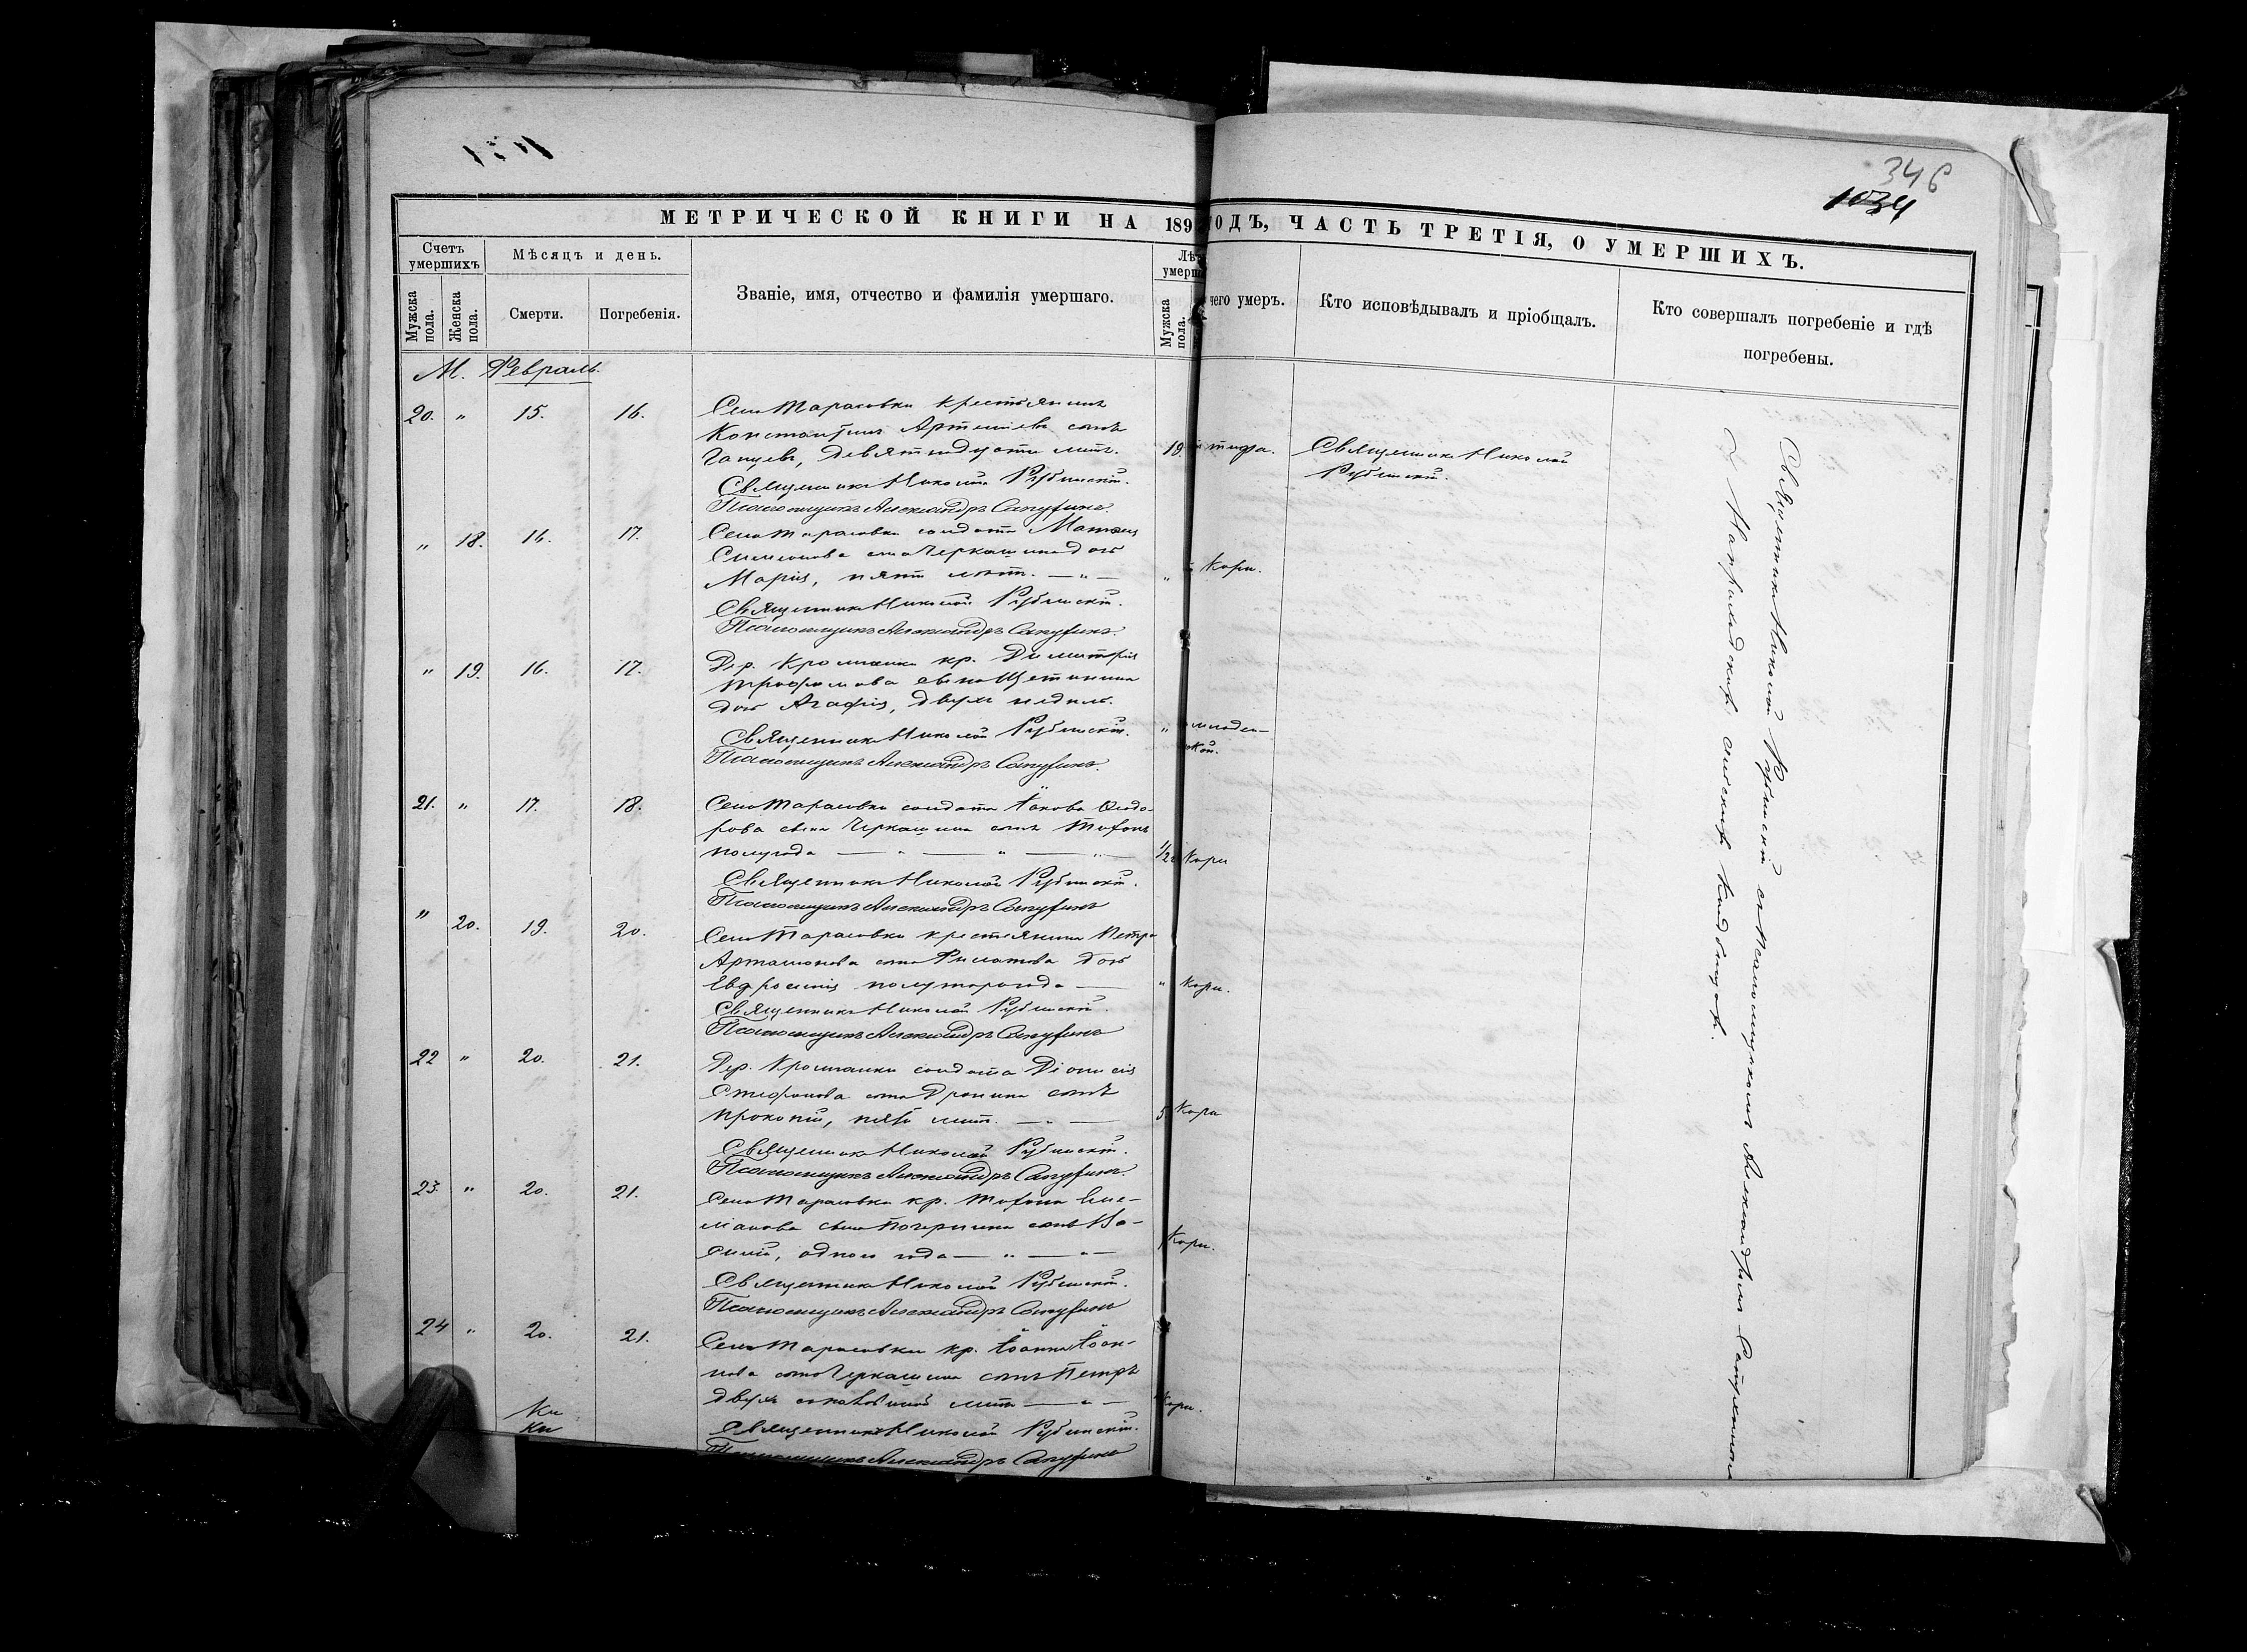 346
1034
МЕТРИЧЕСКОЙ КНИГИ НА 189 ГОДЪ, ЧАСТЬ ТРЕТІЯ, О УМЕРШИХЪ.
Счетъ умершихъ
Мѣсяцъ и день.
Званіе, имя, отчество и фамилія умершаго.
Лѣ
умерш
чего умеръ.
Кто исповѣдывалъ и пріобщалъ.
Кто совершалъ погребеніе и гдѣ
погребены.
Мужска пола.
Женска пола.
Смерти.
Погребенія.
Мужска пола.
М. Февраль.
20. " 15. 16. Села Тарасовки крестьянинъ
Константинъ Артеміевъ сынъ
девятнадцати лѣтъ. 19. тифа. Священникъ Николай
Рубинскій.
Священникъ Николай Рубинскій.
Псаломщикъ Александръ
" 18. 16. 17. Села Тарасовки солдата Матѳія
Симеонова сына Черкашина дочь
Марія, пяти лѣтъ. — " — " Кори.
Священникъ Николай Рубинскій.
Псаломщикъ Александръ
" 19. 16. 17. Дер. кр. Димитрія
Трофимова сына Щетинина
дочь Агафія, двухъ недѣль.
Священникъ Николай Рубинскій. " младен-
ской.
Псаломщикъ Александръ
21. " 17. 18. Села Тарасовки солдата Іакова Ѳеодо-
рова сына Черкашина сынъ Тихонъ
полугода — " — " — " — 1/2 Кори
Священникъ Николай Рубинскій.
Псаломщикъ Александръ
" 20. 19. 20. Села Тарасовки крестьянина Петра
сына Филатова дочь
Евфросинія полуторагода — " Кори.
Священникъ Николай Рубинскій.
Псаломщикъ Александръ
22 " 20. 21. Дер. солдата Діонисія
Стефанова сына Дронина сынъ
Прокопій, пяти лѣтъ. — " — 5 Кори
Священникъ Николай Рубинскій.
Псаломщикъ Александръ
23. " 20. 21. Села Тарасовки кр. Тихона Еме-
ліанова сына сынъ Ва-
силій, одного года — " — " — 1 Кори.
Священникъ Николай Рубинскій.
Псаломщикъ Александръ
24 " 20. 21. Села Тарасовки кр. Іоанна Іоан-
нова сына Черкашина сынъ Петръ
двухъ съ половиной лѣтъ — " — Кори.
Священникъ Николай Рубинскій.
Псаломщикъ Александръ
Священникъ Николай Рубинскій съ Псаломщикомъ Александромъ
на приходскомъ сельскомъ кладбищѣ.